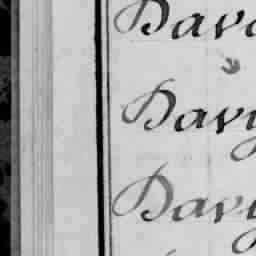 Davi
Davy
Davy